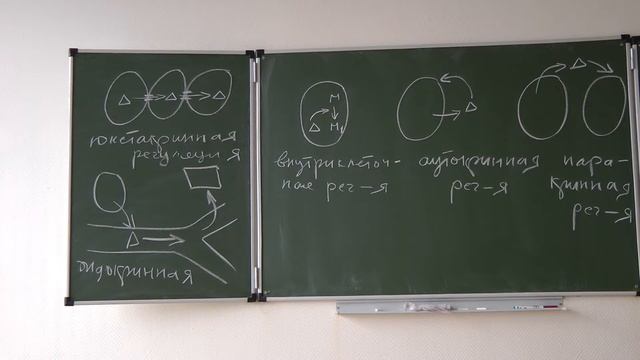 юкстакринная
регуляция
эндокринная
M
M₁
внутриклеточ-
ная рег-я
аутокринная
рег-я
пара-
кринная
рег-я